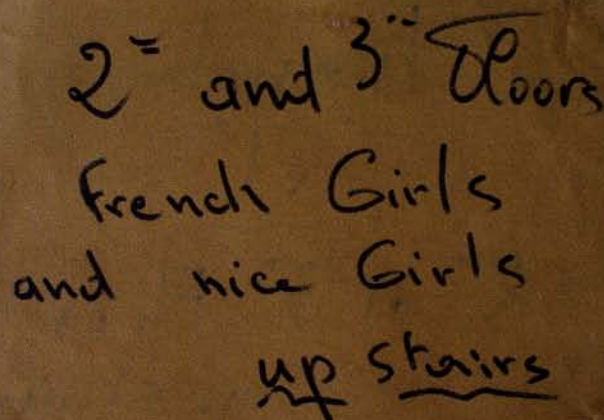 2= and 3" Floors
French Girls
and nice Girls
up stairs